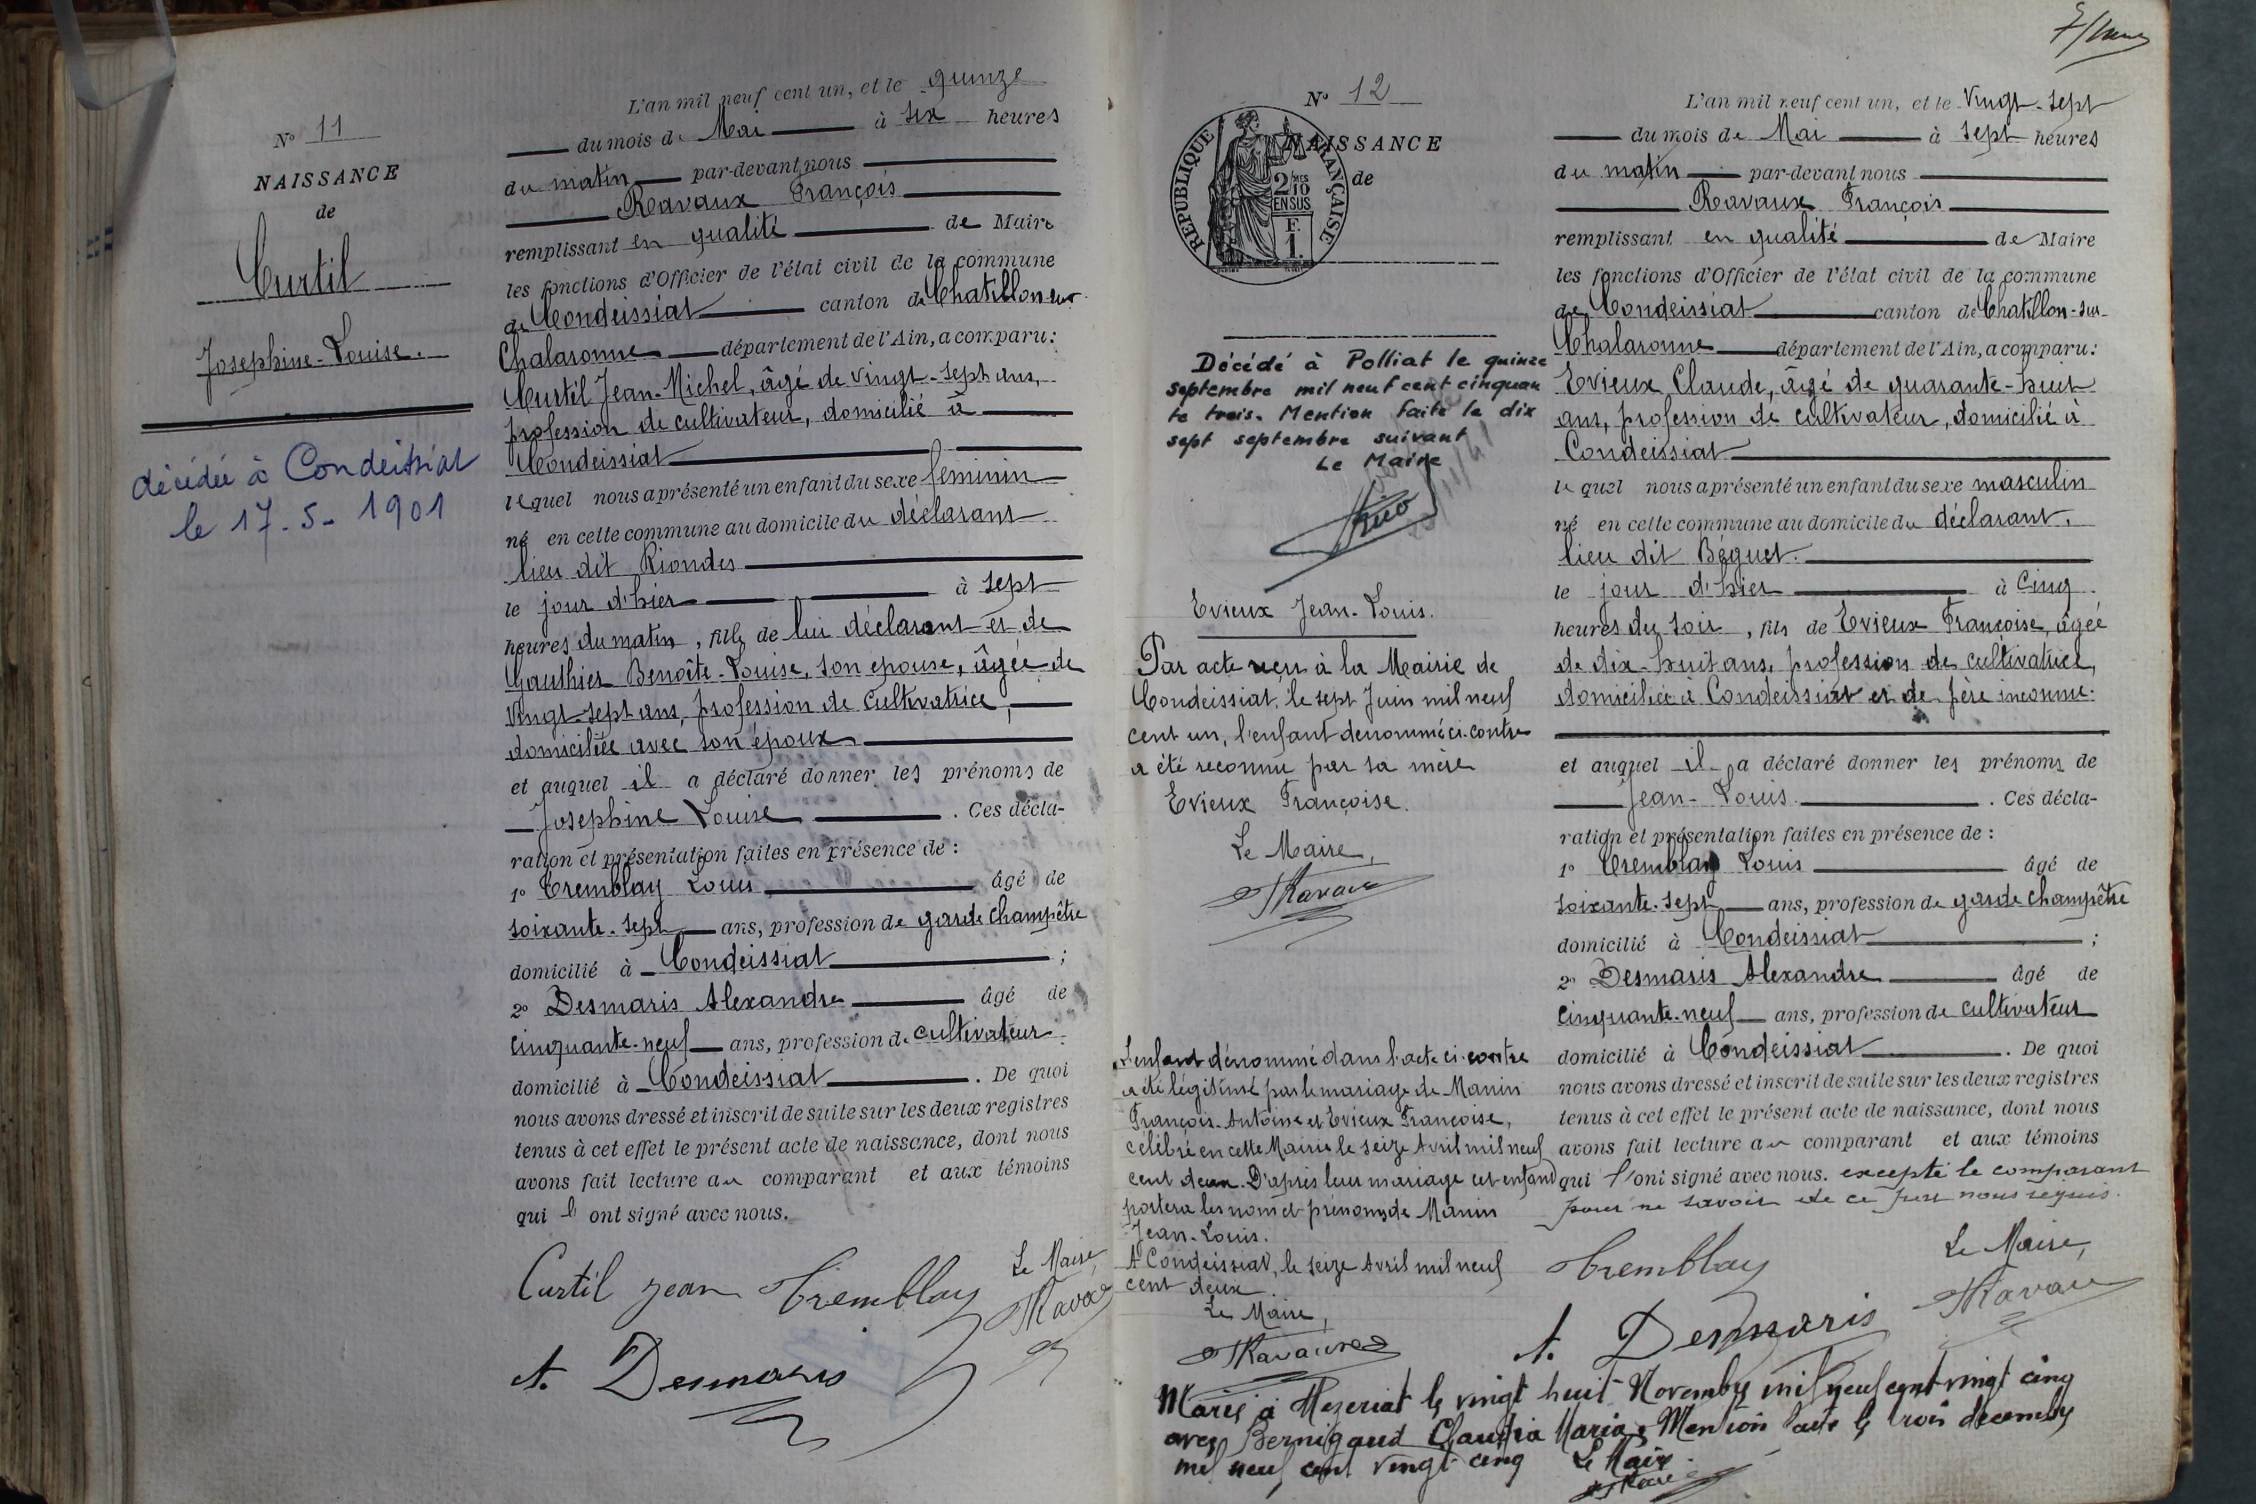 N° 11
NAISSANCE
de
Curtil
Josephine-Louise.
décédée à Condeissiat
le 17-5-1901
L'an mil neuf cent un, et le quinze
du mois de Mai à six heures
du matin par-devant nous
Ravaux François
remplissant en qualité de Maire
les fonctions d'Officier de l'état civil de la commune
de Condeissiat canton de Chatillon-sur-
Chalaronne département de l'Ain, a comparu:
Curtil Jean-Michel, âgé de vingt-sept ans,
profession de cultivateur, domicilié à
Condeissiat
lequel nous a présenté un enfant du sexe feminin
né en cette commune au domicile du déclarant
lieu dit Riondes
le jour d'hier à sept
heures du matin, fille de lui déclarant et de
Gauthier Benoîte-Louise, son épouse, âgée de
vingt-sept ans, profession de cultivatrice,
domiciliée avec son époux
et auquel il a déclaré donner les prénoms de
Josephine Louise. Ces décla-
ration et présentation faites en présence de :
1° Tremblay Louis âgé de
soixante-sept ans, profession de garde champêtre
domicilié à Condeissiat ;
2° Desmaris Alexandre âgé de
cinquante-neuf ans, profession de cultivateur
domicilié à Condeissiat. De quoi
nous avons dressé et inscrit de suite sur les deux registres
tenus à cet effet le présent acte de naissance, dont nous
avons fait lecture au comparant et aux témoins
qui l'ont signé avec nous.
Curtil Jean Tremblay
Le Maire,
Ravaux
A. Desmaris
N° 12
NAISSANCE
de
RÉPUBLIQUE FRANÇAISE
2/10 MES
EN SUS
F.
1.
Décédé à Polliat le quinze
septembre mil neuf cent cinquan
te trois. Mention faite le dix
sept septembre suivant
Le Maire
Evieux Jean-Louis.
Par acte reçu à la Mairie de
Condeissiat, le sept Juin mil neuf
cent un, l'enfant dénommé ci-contre
a été reconnu par sa mère
Evieux Françoise.
Le Maire,
Ravaux
L'enfant dénommé dans l'acte ci-contre
a été légitimé par le mariage de Manin
François-Antoine et Evieux Françoise,
célébré en cette Mairie le seize Avril mil neuf
cent deux. D'après leur mariage cet enfant
portera les nom et prénoms de Manin
Jean-Louis.
A Condeissiat, le seize Avril mil neuf
cent deux
Le Maire,
Ravaux
L'an mil neuf cent un, et le vingt-sept
du mois de Mai à sept heures
du matin par-devant nous
Ravaux François
remplissant en qualité de Maire
les fonctions d'Officier de l'état civil de la commune
de Condeissiat canton de Chatillon-sur-
Chalaronne département de l'Ain, a comparu:
Evieux Claude, âgé de quarante-huit
ans, profession de cultivateur, domicilié à
Condeissiat
lequel nous a présenté un enfant du sexe masculin
né en cette commune au domicile du déclarant,
lieu dit Béguet.
le jour d'hier à cinq
heures du soir, fils de Evieux Françoise, âgée
de dix-huit ans, profession de cultivatrice,
domiciliée à Condeissiat et de père inconnu.
et auquel il a déclaré donner les prénoms de
Jean-Louis. Ces décla-
ration et présentation faites en présence de :
1° Tremblay Louis âgé de
soixante-sept ans, profession de garde champêtre
domicilié à Condeissiat ;
2° Desmaris Alexandre âgé de
cinquante-neuf ans, profession de cultivateur
domicilié à Condeissiat. De quoi
nous avons dressé et inscrit de suite sur les deux registres
tenus à cet effet le présent acte de naissance, dont nous
avons fait lecture au comparant et aux témoins
qui l'ont signé avec nous. excepté le comparant
pour ne savoir de ce par nous requis.
Tremblay
Le Maire,
Ravaux
A. Desmaris
Marié à Mezeriat le vingt huit Novembre mil neuf cent vingt cinq
avec Bernigaud Claudia Maria. Mention faite le trois décembre
mil neuf cent vingt cinq Le Maire